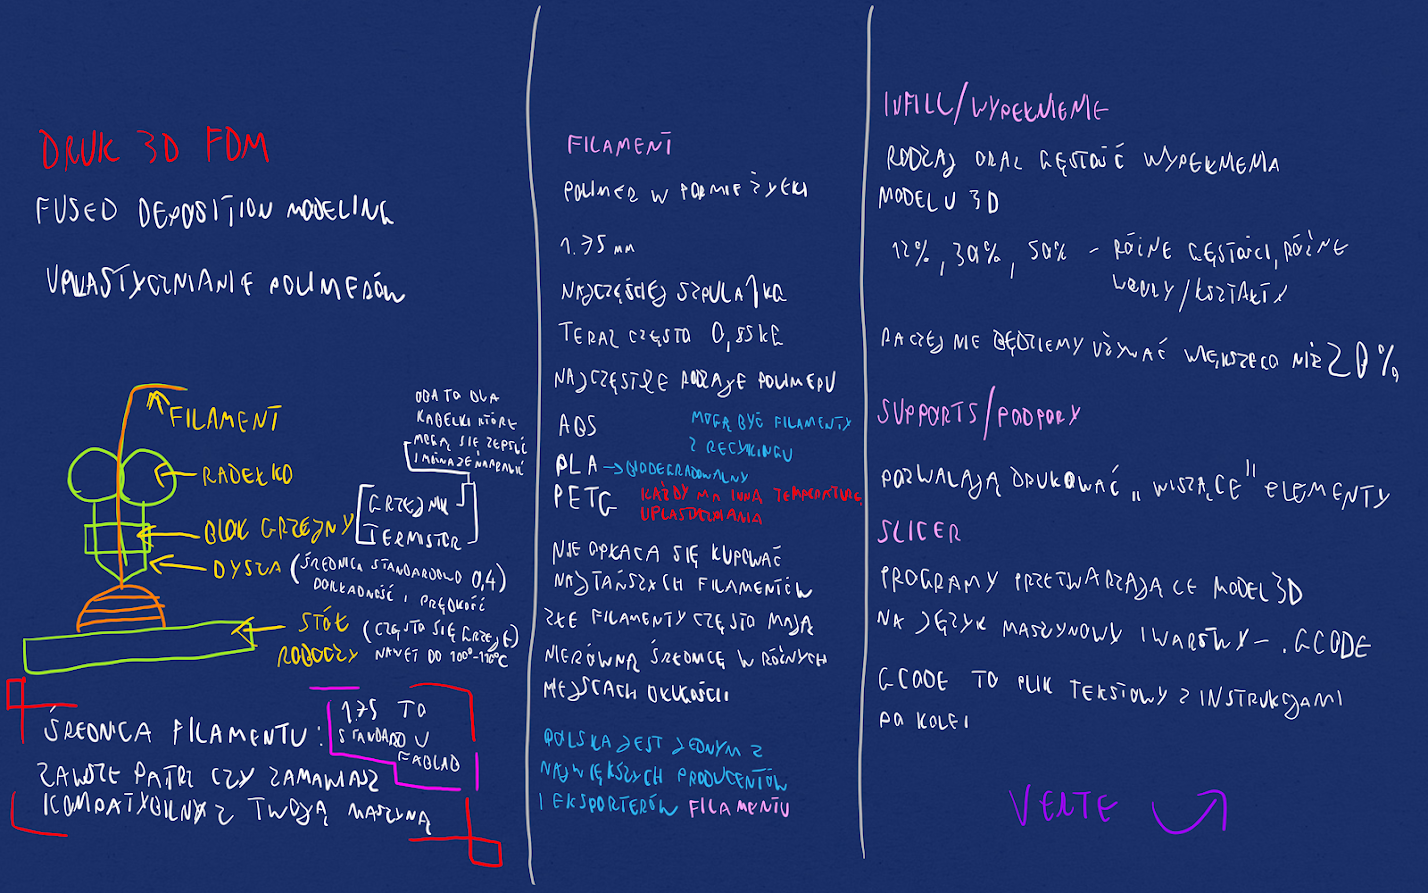 DRUK 3D FDM
FUSED DEPOSITION MODELING
UPLASTYCZNIANIE POLIMERÓW
FILAMENT
RADEŁKO
BLOK GRZEJNY
GRZEJNIK
TERMISTOR
OBA TO DLA
KABELKI KTÓRE
MOGĄ SIĘ ZEPSUĆ
I MOŻNA JE NAPRAWIĆ
DYSZA (ŚREDNICA STANDARDOWO 0,4)
DOKŁADNOŚĆ I PRĘDKOŚĆ
STÓŁ
ROBOCZY
(CZĘSTO SIĘ GRZEJE)
NAWET DO 100°-110°C
ŚREDNICA FILAMENTU:
1.75 TO
STANDARD U
FABLAB
ZAWSZE PATRZ CZY ZAMAWIASZ
KOMPATYBILNY Z TWOJĄ MASZYNĄ
FILAMENT
POLIMER W FORMIE ŻYŁKI
1.75 mm
NAJCZĘŚCIEJ SZPULA 1KG
TERAZ CZĘSTO 0,85KG
NAJCZĘSTSZE RODZAJE POLIMERU
ABS
PLA → BIODEGRADOWALNY
PETG
MOGĄ BYĆ FILAMENTY
Z RECYKLINGU
KAŻDY MA INNĄ TEMPERATURĘ
UPLASTYCZNIANIA
NIE OPŁACA SIĘ KUPOWAĆ
NAJTAŃSZYCH FILAMENTÓW
ZŁE FILAMENTY CZĘSTO MAJĄ
NIERÓWNĄ ŚREDNICĘ W RÓŻNYCH
MIEJSCACH DŁUGOŚCI
POLSKA JEST JEDNYM Z
NAJWIĘKSZYCH PRODUCENTÓW
I EKSPORTERÓW FILAMENTU
INFILL/WYPEŁNIENIE
RODZAJ ORAZ GĘSTOŚĆ WYPEŁNIENIA
MODELU 3D
12%, 30%, 50% - RÓŻNE GĘSTOŚCI, RÓŻNE
WZORY/KSZTAŁTY
RACZEJ NIE BĘDZIEMY UŻYWAĆ WIĘKSZEGO NIŻ 20%
SUPPORTS/PODPORY
POZWALAJĄ DRUKOWAĆ „WISZĄCE" ELEMENTY
SLICER
PROGRAMY PRZETWARZAJĄCE MODEL 3D
NA JĘZYK MASZYNOWY I WARSTWY - .GCODE
GCODE TO PLIK TEKSTOWY Z INSTRUKCJAMI
PO KOLEI
VERTE